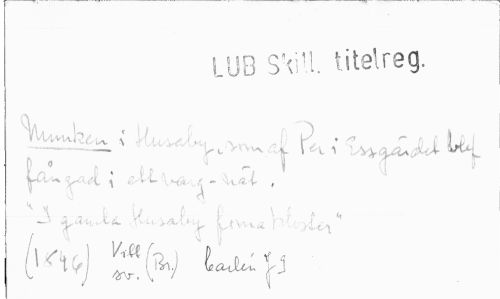 LUB Skill. titelreg.
Munken i Husaby, som af Per i Essgärdet blef
fångad i ett varg-nät.
"I gamla Husaby forna kloster"
(1846) Vitt. sv. (Br.) Carlén J G